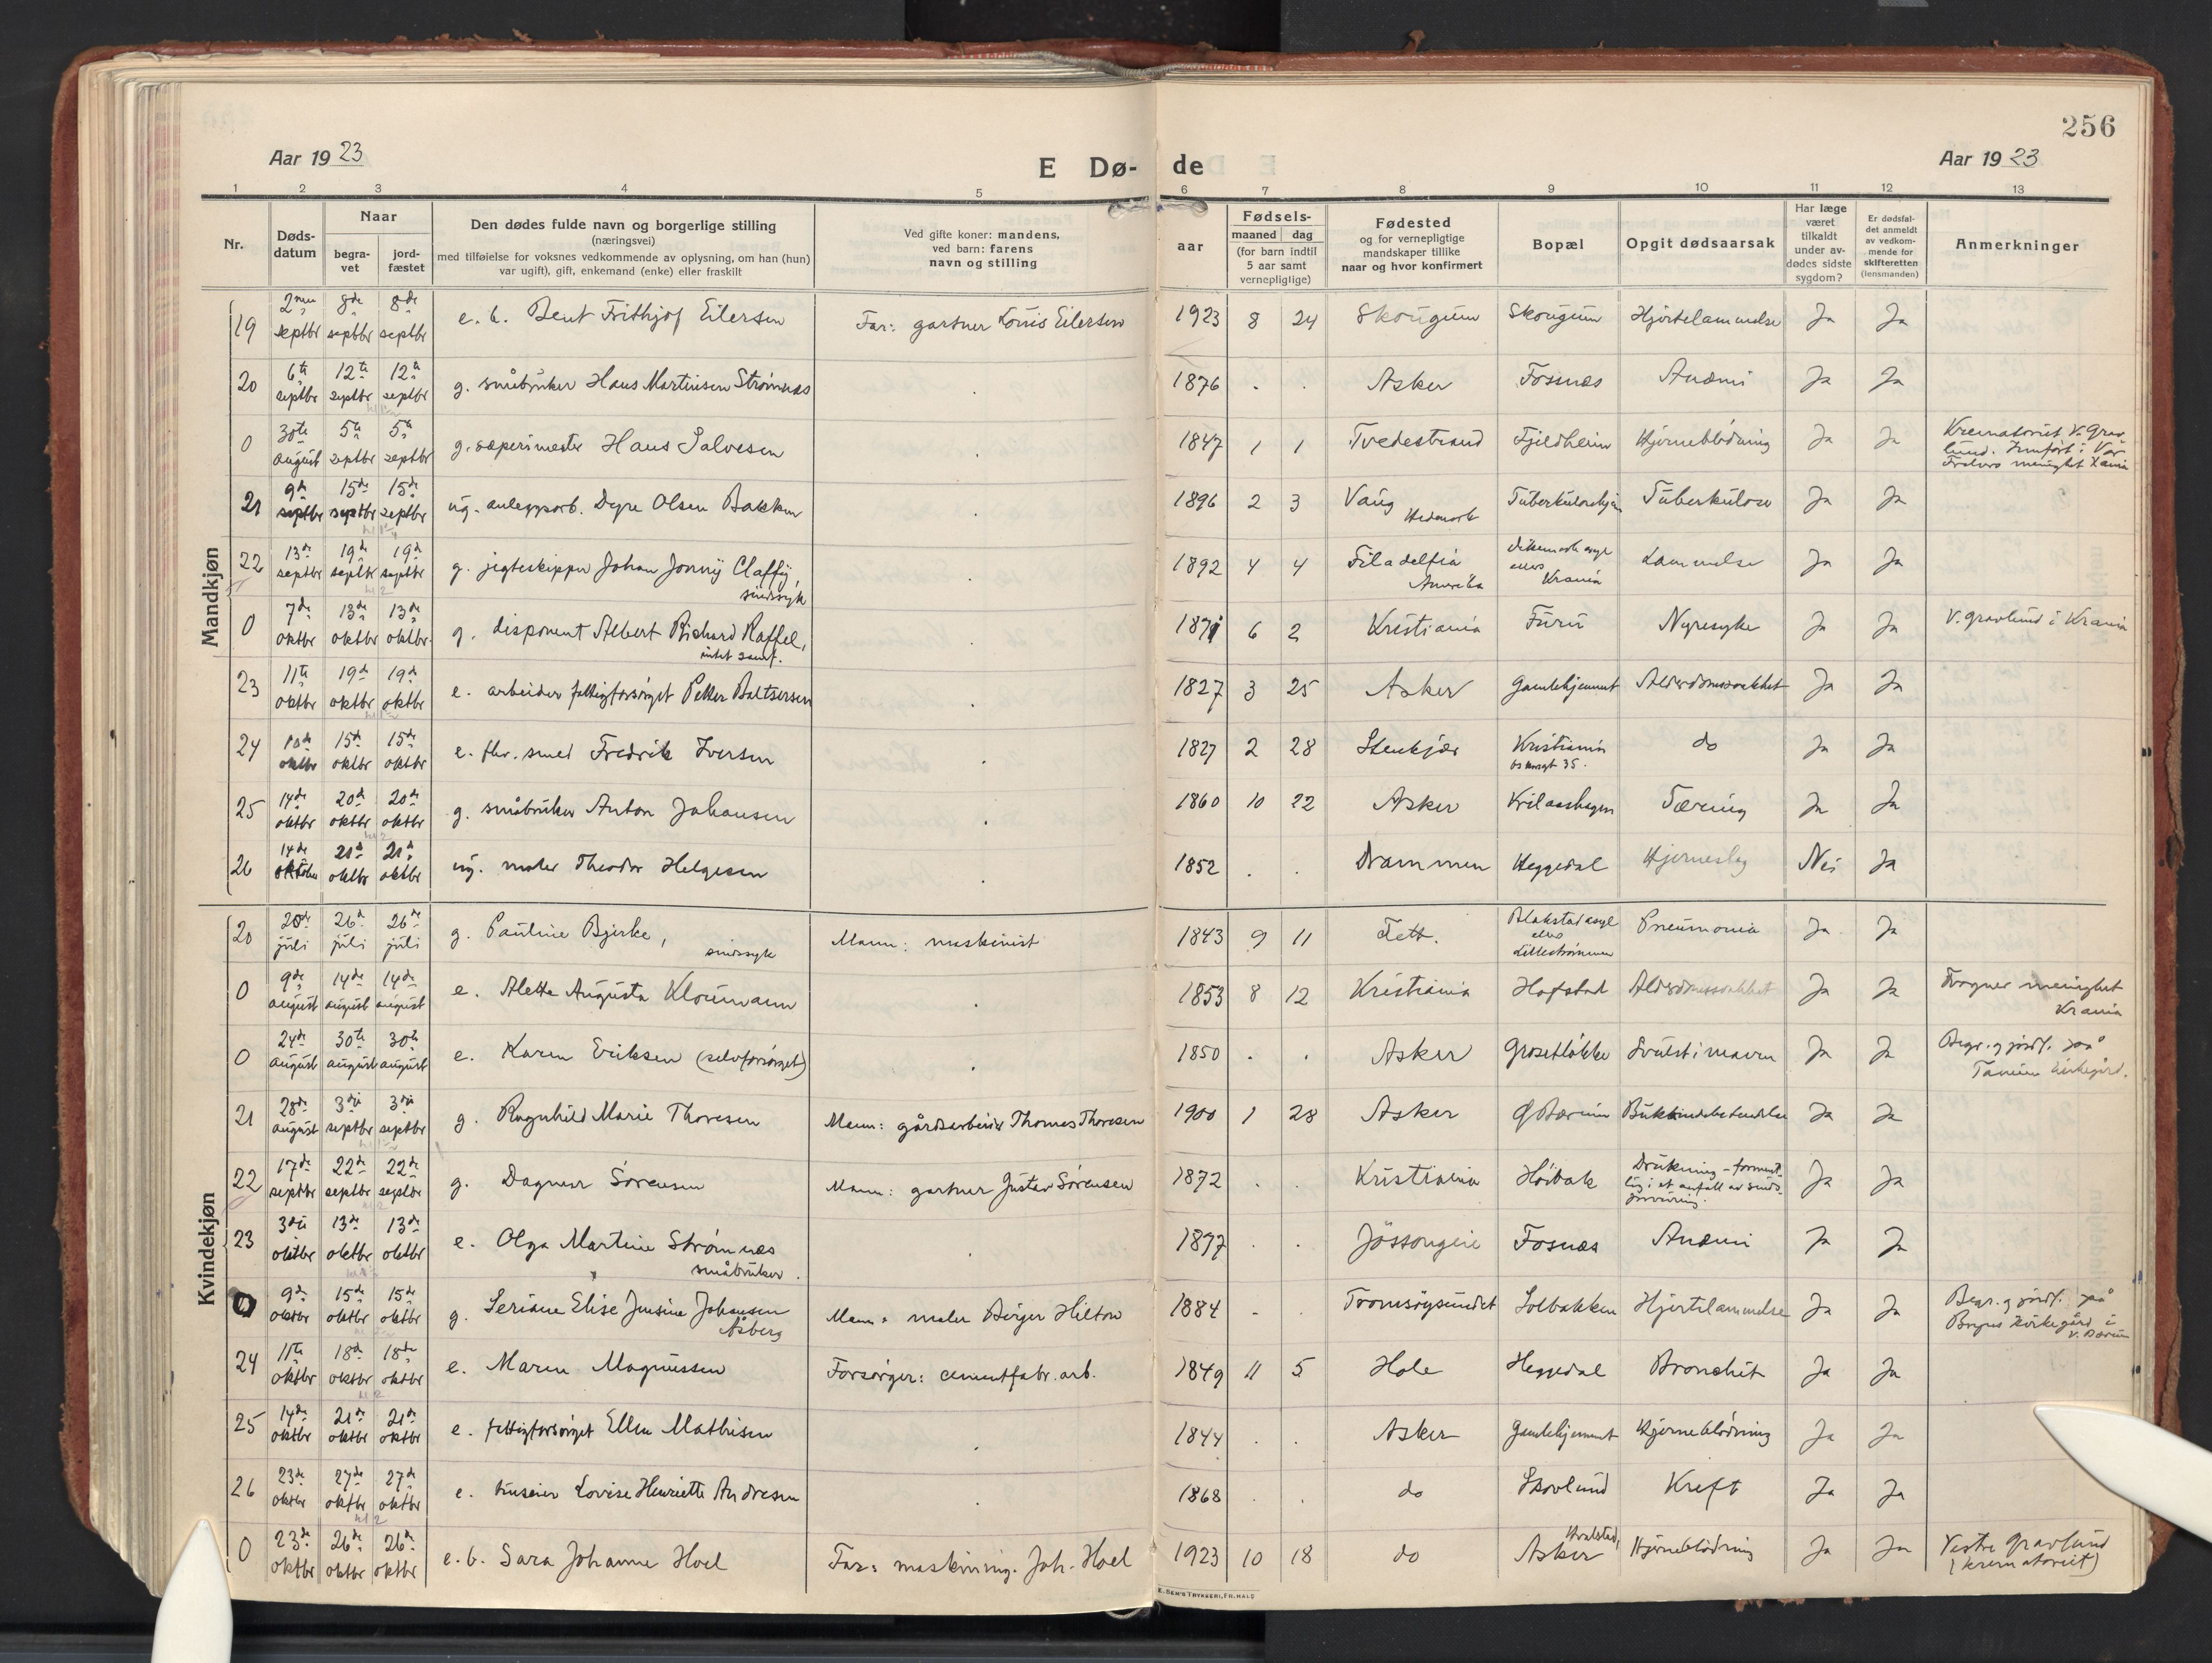 256
Aar 1923
E Dø-de
Aar 1923
1 2 3 4 5 6 7 8 9 10 11 12 13
Nr.
Døds-
datum
Naar
begra-
vet
jord-
fæstet
Den dødes fulde navn og borgerlige stilling
(næringsvei)
med tilføielse for voksnes vedkommende av oplysning, om han (hun)
var ugift), gift, enkemand (enke) eller fraskilt
Ved gifte koner: mandens,
ved barn: farens
navn og stilling
Fødsels-
aar
maaned dag
(for barn indtil
5 aar samt
vernepligtige)
Fødested
og for vernepligtige
mandskaper tillike
naar og hvor konfirmert
Bopæl
Opgit dødsaarsak
Har læge
været
tilkaldt
under av-
dødes sidste
sygdom?
Er dødsfal-
det anmeldt
av vedkom-
mende for
skifteretten
(lensmanden)
Anmerkninger
Mandkjøn
19 2nen septbr 8de septbr 8de septbr e. b. Bent Frithjof Eilersen Far: gartner Louis Eilersen 1923 8 24 Skougum Skougum Hjertelammelse Ja Ja
20 6te septbr 12te septbr 12te septbr g. småbruker Hans Martinsen Strømnæs 1876 . . Asker Fosnæs Anæmi Ja Ja
0 30te august 5te septbr 5te septbr g. Hans Salvesen 1847 1 1 Tvedestrand Fjeldheim Hjerneblødning Ja Ja Krematoriet V. Grav-
lund. Jmnført i Vår
Frelsers menighet Xania
21 9de septbr 15de septbr 15de septbr ug. anleggsarb. Dyre Olsen Bakken 1896 2 3 Vang
Hedmark Tuberkulosehjem Tuberkulose Ja Ja
22 13de septbr 19de septbr 19de septbr g. jagteskipper Johan Jonny Claffy,
sindssyk 1892 4 4 Filadelfia
Amerika Dikemark asyl
ellers
Krania Lammelse Ja Ja
0 7de oktbr 13de oktbr 13de oktbr. g. disponent Albert Richard Raffel,
intet samf. 1871 6 2 Kristiania Furu Nyresyke Ja Ja V. gravlund i Krania
23 11te oktbr 19de oktbr 19de oktbr e. arbeider fattigforsørget Petter Baltsersen 1827 3 25 Asker Gamlehjemmet Alderdomssvakhet Ja Ja
24 10de oktbr 15de oktbr 15de oktbr e. fhv. smed Fredrik Iversen 1827 2 28 Stenkjær Kristiania
35. do Ja Ja
25 14de oktbr 20de oktbr 20de oktbr g. småbruker Anton Johansen 1860 10 22 Asker Tæring Ja Ja
26 14de oktober 21de oktbr 21de oktbr ug. maler Theodor Helgesen 1852 . . Drammen Heggedal Hjerneslag Nei Ja
Kvindekjøn
20 20de juli 26de juli 26de juli g. Pauline Bjerke,
sindssyk Mann: maskinist 1843 9 11 Fett. Blakstad asyl
ellers
Lillestrømmen Pneumonia Ja Ja
0 9de august 14de august 14de august e. Alette Augusta Kloumann 1853 8 12 Kristiania Hofstad Alderdomssvakhet Ja Ja Frogner menighet
Krania
0 24de august 30te august 30te august e. Karen Eriksen (selvforsørget) 1850 . . Asker Grosetløkke Svulst i maven Ja Ja Begr. og jordf. på
Tanum kirkegård.
21 28de august 3die septbr 3die septbr g. Ragnhild Marie Thoresen Mann: gårdsarbeider Thomas Thoresen 1900 1 28 Asker Ø Bærum Bukhindebetendelse Ja Ja
22 17de septbr 22de septbr 22de septbr g. Dagmar Sørensen Mann: gartner Gustav Sørensen 1872 . . Kristiania Høibak Drukning – forment-
lig i et anfall av sinds-
forvirring. Ja Ja
23 3die oktbr 13de oktbr 13de oktbr e. Olga Martine Strømnæs
småbruker. 1877 . . Fosnæs Anæmi Ja Ja
0 9de oktbr 15de oktbr 15de oktbr g. Seriane Elise Jensine Johansen
Åsberg Mann: maler Birger Hilton 1884 - - Tromsøysundet Solbakken Hjertelammelse Ja Ja Begr. og jordf. på
Bryns kirkegård i
V. Bærum
24 11te oktbr 18de oktbr 18de oktbr e. Maren Magnussen Forsørger: cementfabr. arb. 1849 11 5 Hole Heggedal Bronchit Ja Ja
25 14de oktbr 21de oktbr 21de oktbr e. fattigforsørget Ellen Mathisen 1844 . . Asker Gamlehjemmet Hjerneblødning Ja Ja
26 23de oktbr 27de oktbr 27de oktbr e. huseier Lovise Henriette Andresen 1868 . . do Skovlund Kreft Ja Ja
0 23de oktbr 26de oktbr 26de oktbr e. b. Sara Johanne Hoel Far: maskining. Joh. Hoel 1923 10 18 do Hvalstad,
Asker Hjerneblødning Ja Ja Vestre Gravlund
(krematoriet)
E. SEM'S TRYKKERI, FR.HALD